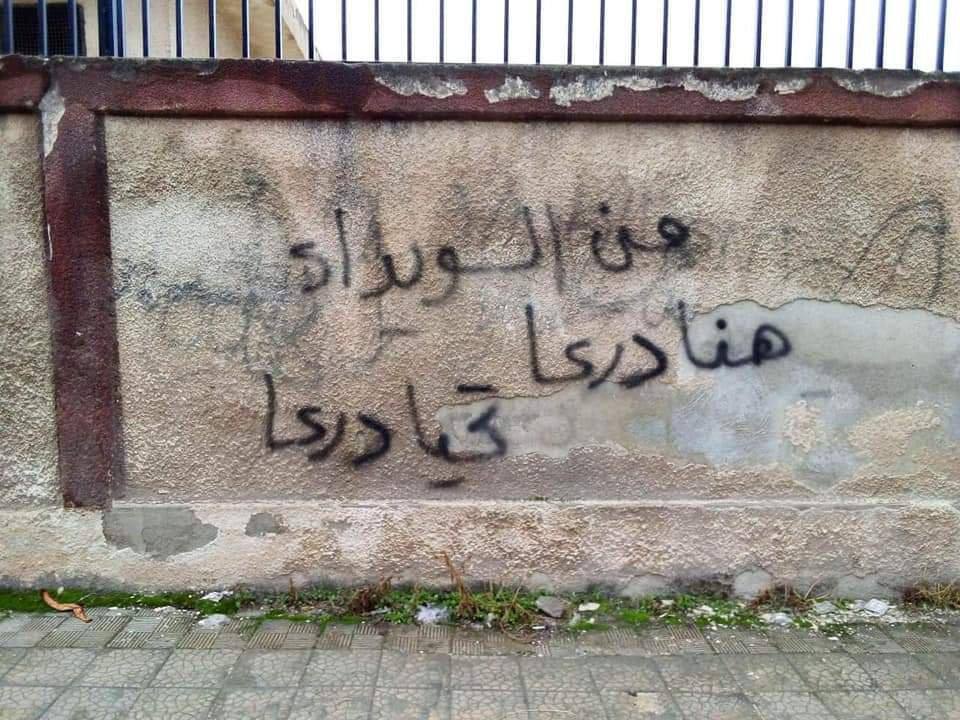 من السويداء
هنا درعا
تحيا درعا